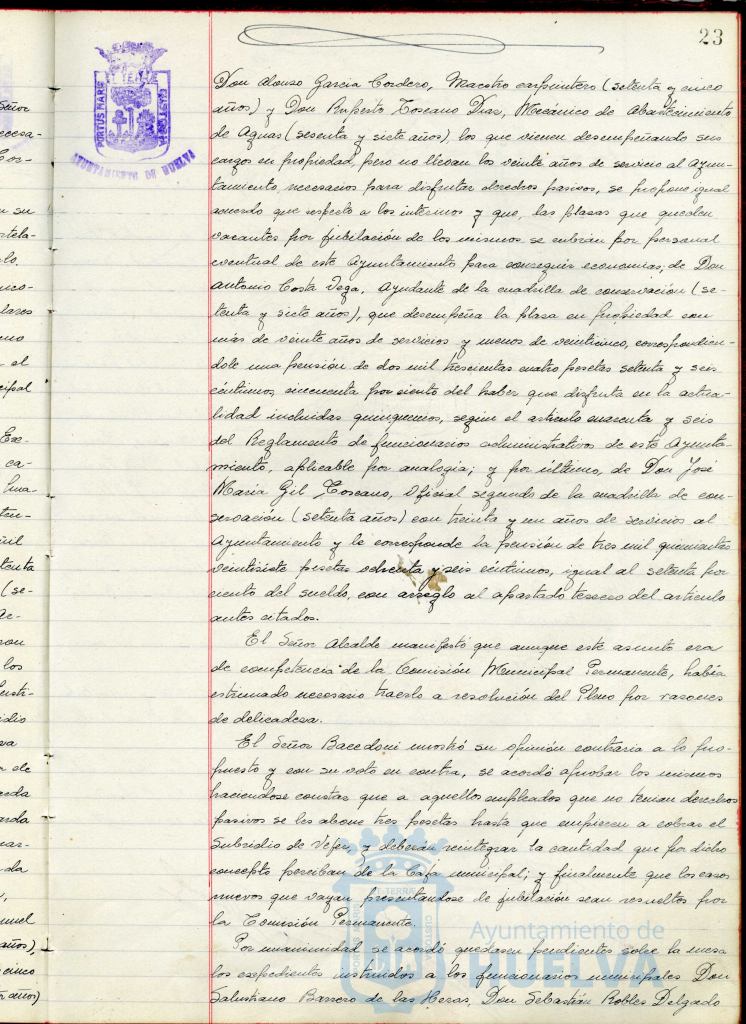 23
PORTUS MARIS
ET TERRÆ
CUSTODIA
AYUNTAMIENTO DE HUELVA
Don Alonso Garcia Cordero, Maestro carpintero (setenta y cinco
años) y Don Ruperto Toscano Dias, Mecánico de Abastecimiento
de Aguas (sesenta y siete años), los que vienen desempeñando sus
cargos en propiedad, pero no llevan los veinte años de servicio al Ayun-
tamiento, necesarios para disfrutar derechos pasivos, se propone igual
acuerdo que respecto a los internos y que, las plasas que queden
vacantes por jubilación de los mismos se cubran por personal
eventual de este Ayuntamiento para conseguir economias; de Don
Antonio Costa Vega, Ayudante de la cuadrilla de conservación (se-
tenta y siete años), que desempeña la plasa en propiedad con
más de veinte años de servicios y menos de veinticinco, correspondien-
dole una pensión de dos mil trescientas cuatro pesetas setenta y seis
céntimos, cincuenta por ciento del haber que disfruta en la actua-
lidad incluidas quinquenios, según el articulo cuarenta y seis
del Reglamento de funcionarios administrativos de este Ayunta-
miento, aplicable por analogia; y por último, de Don José
Maria Gil Toscano, Oficial segundo de la cuadrilla de con-
servación (setenta años) con treinta y un años de servicios al
Ayuntamiento y le corresponde la pensión de tres mil quinientas
veintisiete pesetas ochenta y seis céntimos, igual al setenta por
ciento del sueldo, con arreglo al apartado tercero del articulo
antes citados.
El Señor Alcalde manifestó que aunque este asunto era
de competencia de la Comisión Municipal Permanente, habia
estimado necesario traerlo a resolución del Pleno por razones
de delicadesa.
El Señor Bacedoni mostró su opinión contraria a lo pro-
puesto y con su voto en contra, se acordó aprobar los mismos
haciendose constar que a aquellos empleados que no tenian derechos
pasivos se les abone tres pesetas hasta que empiecen a cobrar el
Subsidio de Vejez, y deberán reintegrar la cantidad que por dicho
concepto perciban de la Caja municipal; y finalmente que los casos
nuevos que vayan presentandose de jubilación sean resueltos por
la Comisión Permanente.
Por unanimidad se acordó quedasen pendientes sobre la mesa
los expedientes instruidos a los funcionarios municipales Don
Salustiano Barrero de las Heras, Don Sebastián Robles Delgado
Ayuntamiento de
HUELVA